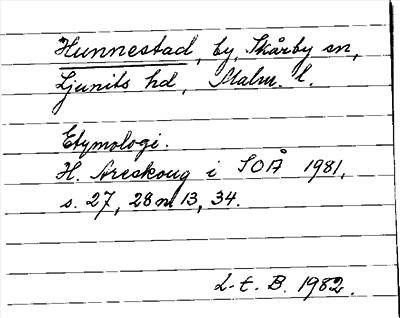 Hunnestad, by, Skårby sn,
Ljunits hd, Malm. l.
Etymologi.
H. Areskoug i SOÅ 1981,
s. 27, 28 n 13, 34.
L-t. B. 1982.